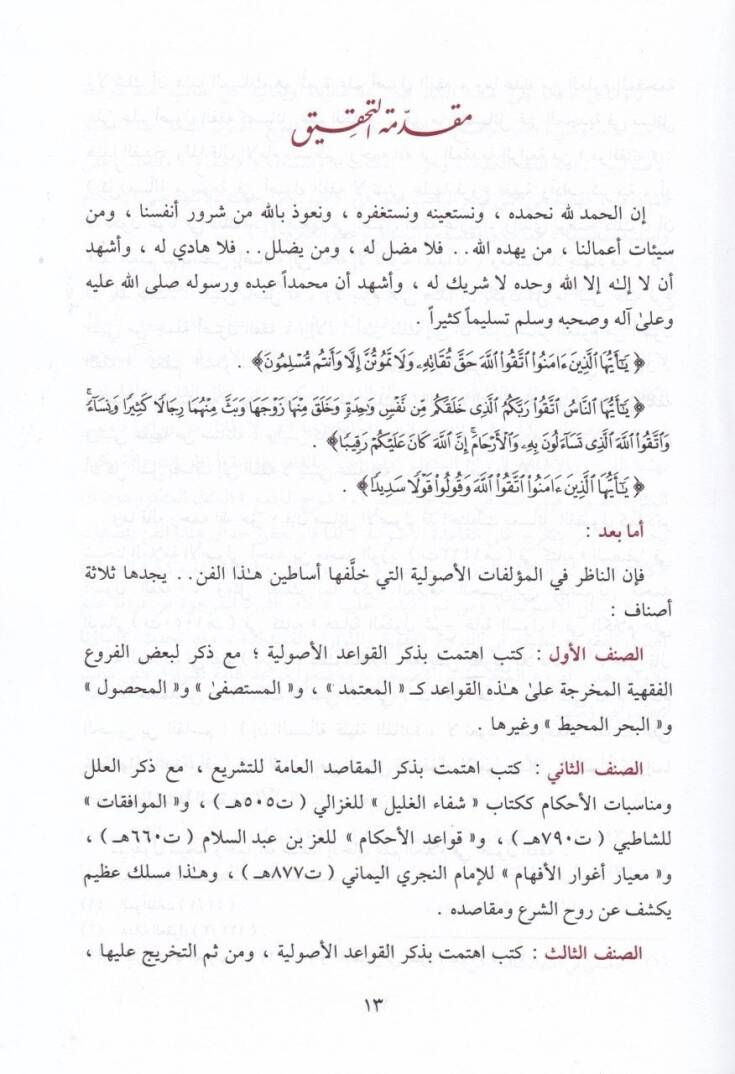 مقدّمة التحقيق
إن الحمد لله نحمده ، ونستعينه ونستغفره ، ونعوذ بالله من شرور أنفسنا ، ومن
سيئات أعمالنا ، من يهده الله.. فلا مضل له ، ومن يضلل.. فلا هادي له ، وأشهد
أن لا إلٰه إلا الله وحده لا شريك له ، وأشهد أن محمداً عبده ورسوله صلى الله عليه
وعلىٰ آله وصحبه وسلم تسليماً كثيراً .
﴿ يَٰٓأَيُّهَا ٱلَّذِينَ ءَامَنُوا۟ ٱتَّقُوا۟ ٱللَّهَ حَقَّ تُقَاتِهِۦ وَلَا تَمُوتُنَّ إِلَّا وَأَنتُم مُّسْلِمُونَ ﴾ .
﴿ يَٰٓأَيُّهَا ٱلنَّاسُ ٱتَّقُوا۟ رَبَّكُمُ ٱلَّذِى خَلَقَكُم مِّن نَّفْسٍ وَٰحِدَةٍ وَخَلَقَ مِنْهَا زَوْجَهَا وَبَثَّ مِنْهُمَا رِجَالًا كَثِيرًا وَنِسَآءً ۚ
وَٱتَّقُوا۟ ٱللَّهَ ٱلَّذِى تَسَآءَلُونَ بِهِۦ وَٱلْأَرْحَامَ ۚ إِنَّ ٱللَّهَ كَانَ عَلَيْكُمْ رَقِيبًا ﴾ .
﴿ يَٰٓأَيُّهَا ٱلَّذِينَ ءَامَنُوا۟ ٱتَّقُوا۟ ٱللَّهَ وَقُولُوا۟ قَوْلًا سَدِيدًا ﴾ .
أما بعد :
فإن الناظر في المؤلفات الأصولية التي خلَّفها أساطين هـٰذا الفن.. يجدها ثلاثة
أصناف :
الصنف الأول : كتب اهتمت بذكر القواعد الأصولية ؛ مع ذكر لبعض الفروع
الفقهية المخرجة علىٰ هـٰذه القواعد كـ « المعتمد » ، و« المستصفىٰ » و« المحصول »
و« البحر المحيط » وغيرها .
الصنف الثاني : كتب اهتمت بذكر المقاصد العامة للتشريع ، مع ذكر العلل
ومناسبات الأحكام ككتاب « شفاء الغليل » للغزالي ( ت٥٠٥هـ ) ، و« الموافقات »
للشاطبي ( ت٧٩٠هـ ) ، و« قواعد الأحكام » للعز بن عبد السلام ( ت٦٦٠هـ ) ،
و« معيار أغوار الأفهام » للإمام النجري اليماني ( ت٨٧٧هـ ) ، وهـٰذا مسلك عظيم
يكشف عن روح الشرع ومقاصده .
الصنف الثالث : كتب اهتمت بذكر القواعد الأصولية ، ومن ثم التخريج عليها ،
١٣